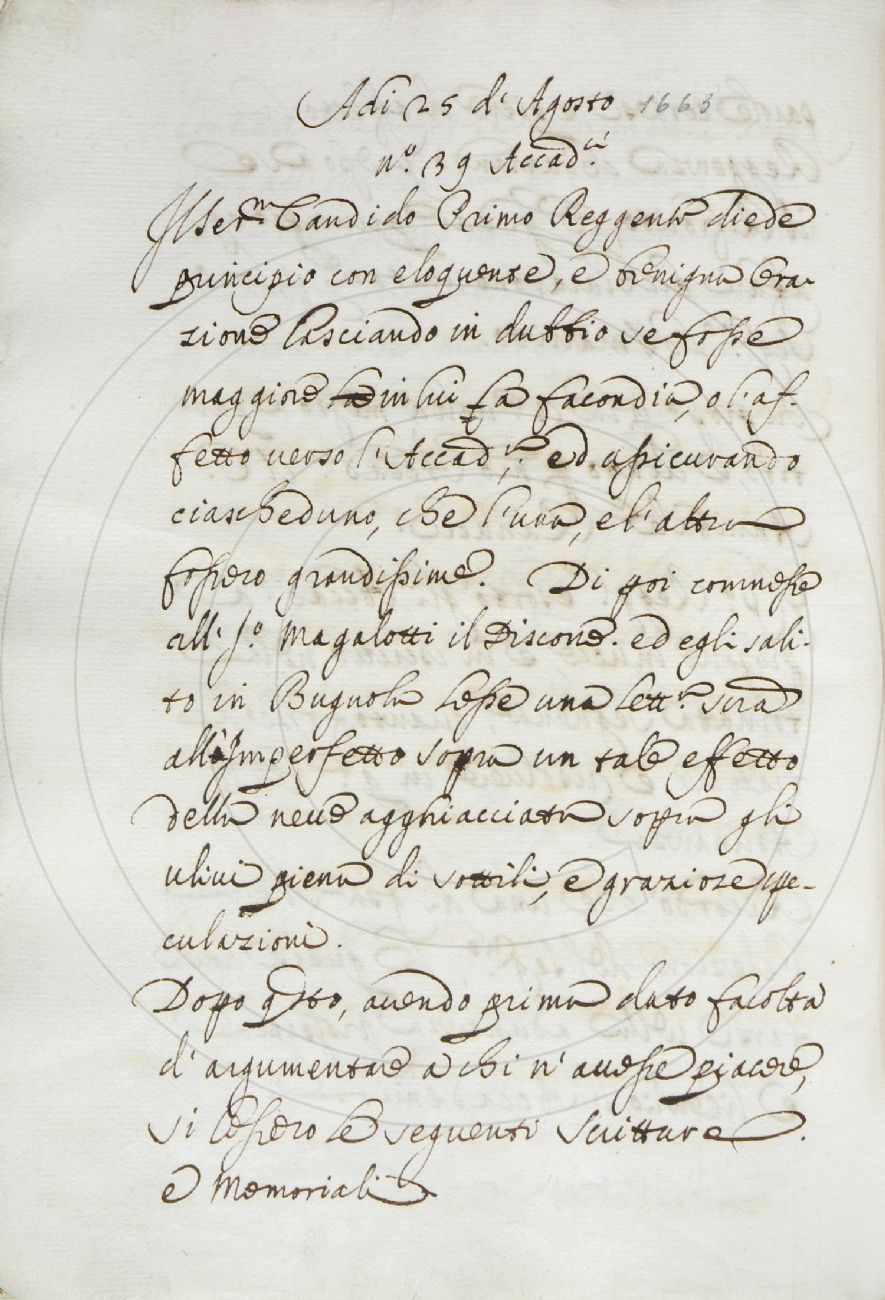 Adi 25 d'Agosto 1663
n.º 39 Accad.ci
Il Ser.mo Candido Primo Reggente diede
principio con eloquente, e benigna Ora-
zione lasciando in dubbio se fosse
maggiore in lui la facondia, o l'af-
fetto verso l'Accad.a, ed assicurando
ciascheduno, che l'una, e l'altra
fossero grandissime. Di poi commesse
all' S.º Magalotti il Discorso. ed egli sali-
to in Bugnola lesse una lett.ra scritta
all'Imperfetto sopra un tale effetto
della neve agghiacciata sopra gli
ulivi piena di sottili, e graziose spe-
culazioni.
Dopo q.sto, avendo prima dato facoltà
d'argumentare à chi n'avesse piacere,
si lessero le seguenti Scritture.
e Memoriali